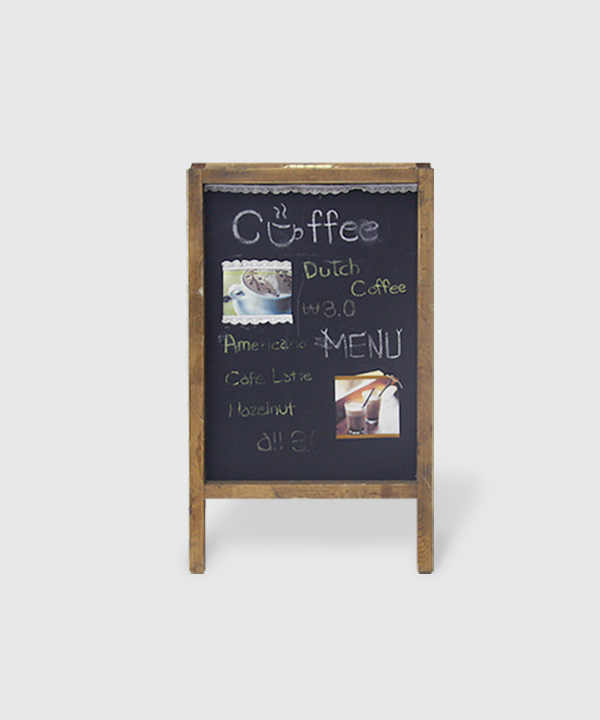 Coffee
Dutch
Coffee
₩3.0
Americano
MENU
Cafe Latte
Hazelnut
all 3.0